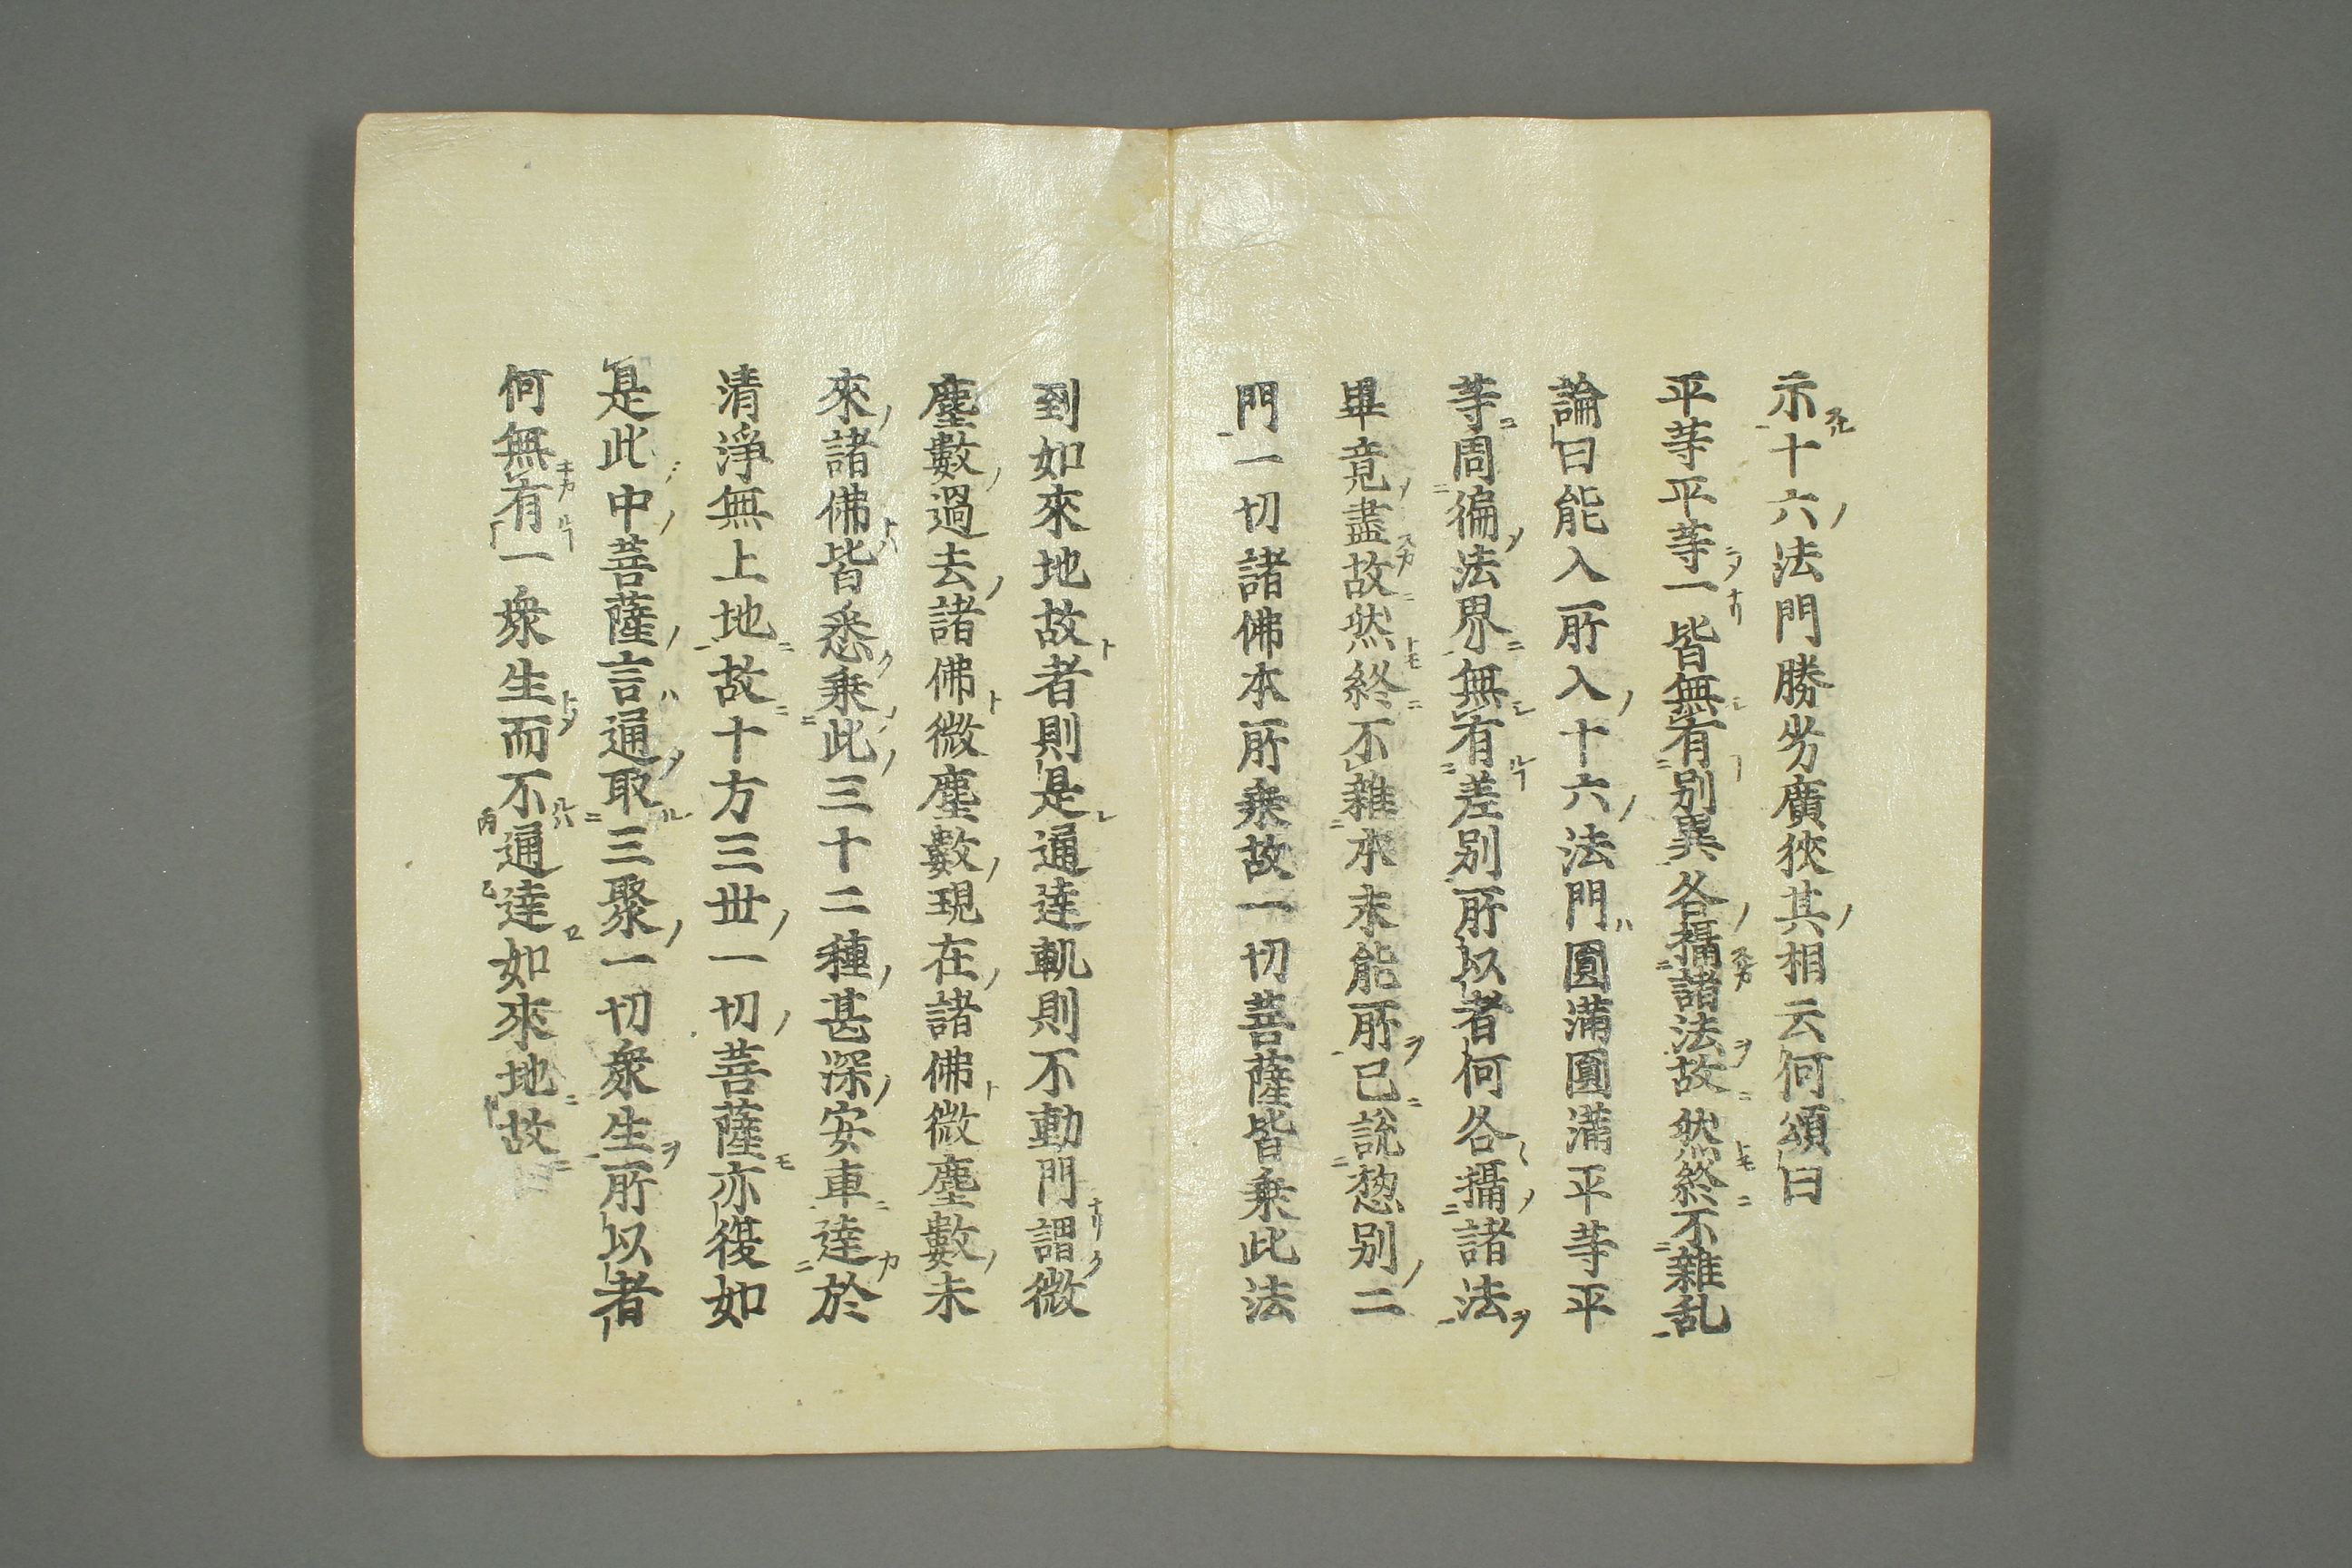 示十六法門勝劣廣狹其相云何頌曰
平等平等一皆無有別異各攝諸法故然終不雜乱
論曰能入所入十六法門圓滿圓滿平等平
等周徧法界無有差別所以者何各攝諸法
畢竟盡故然終不雜本末能所已說惣別二
門一切諸佛本所乗故一切菩薩皆乗此法
到如來地故者則是通達軌則不動門謂微
塵數過去諸佛微塵數現在諸佛微塵數未
來諸佛皆悉乗此三十二種甚深安車達於
清淨無上地故十方三世一切菩薩亦復如
是此中菩薩言通取三聚一切衆生所以者
何無有一衆生而不通達如來地故